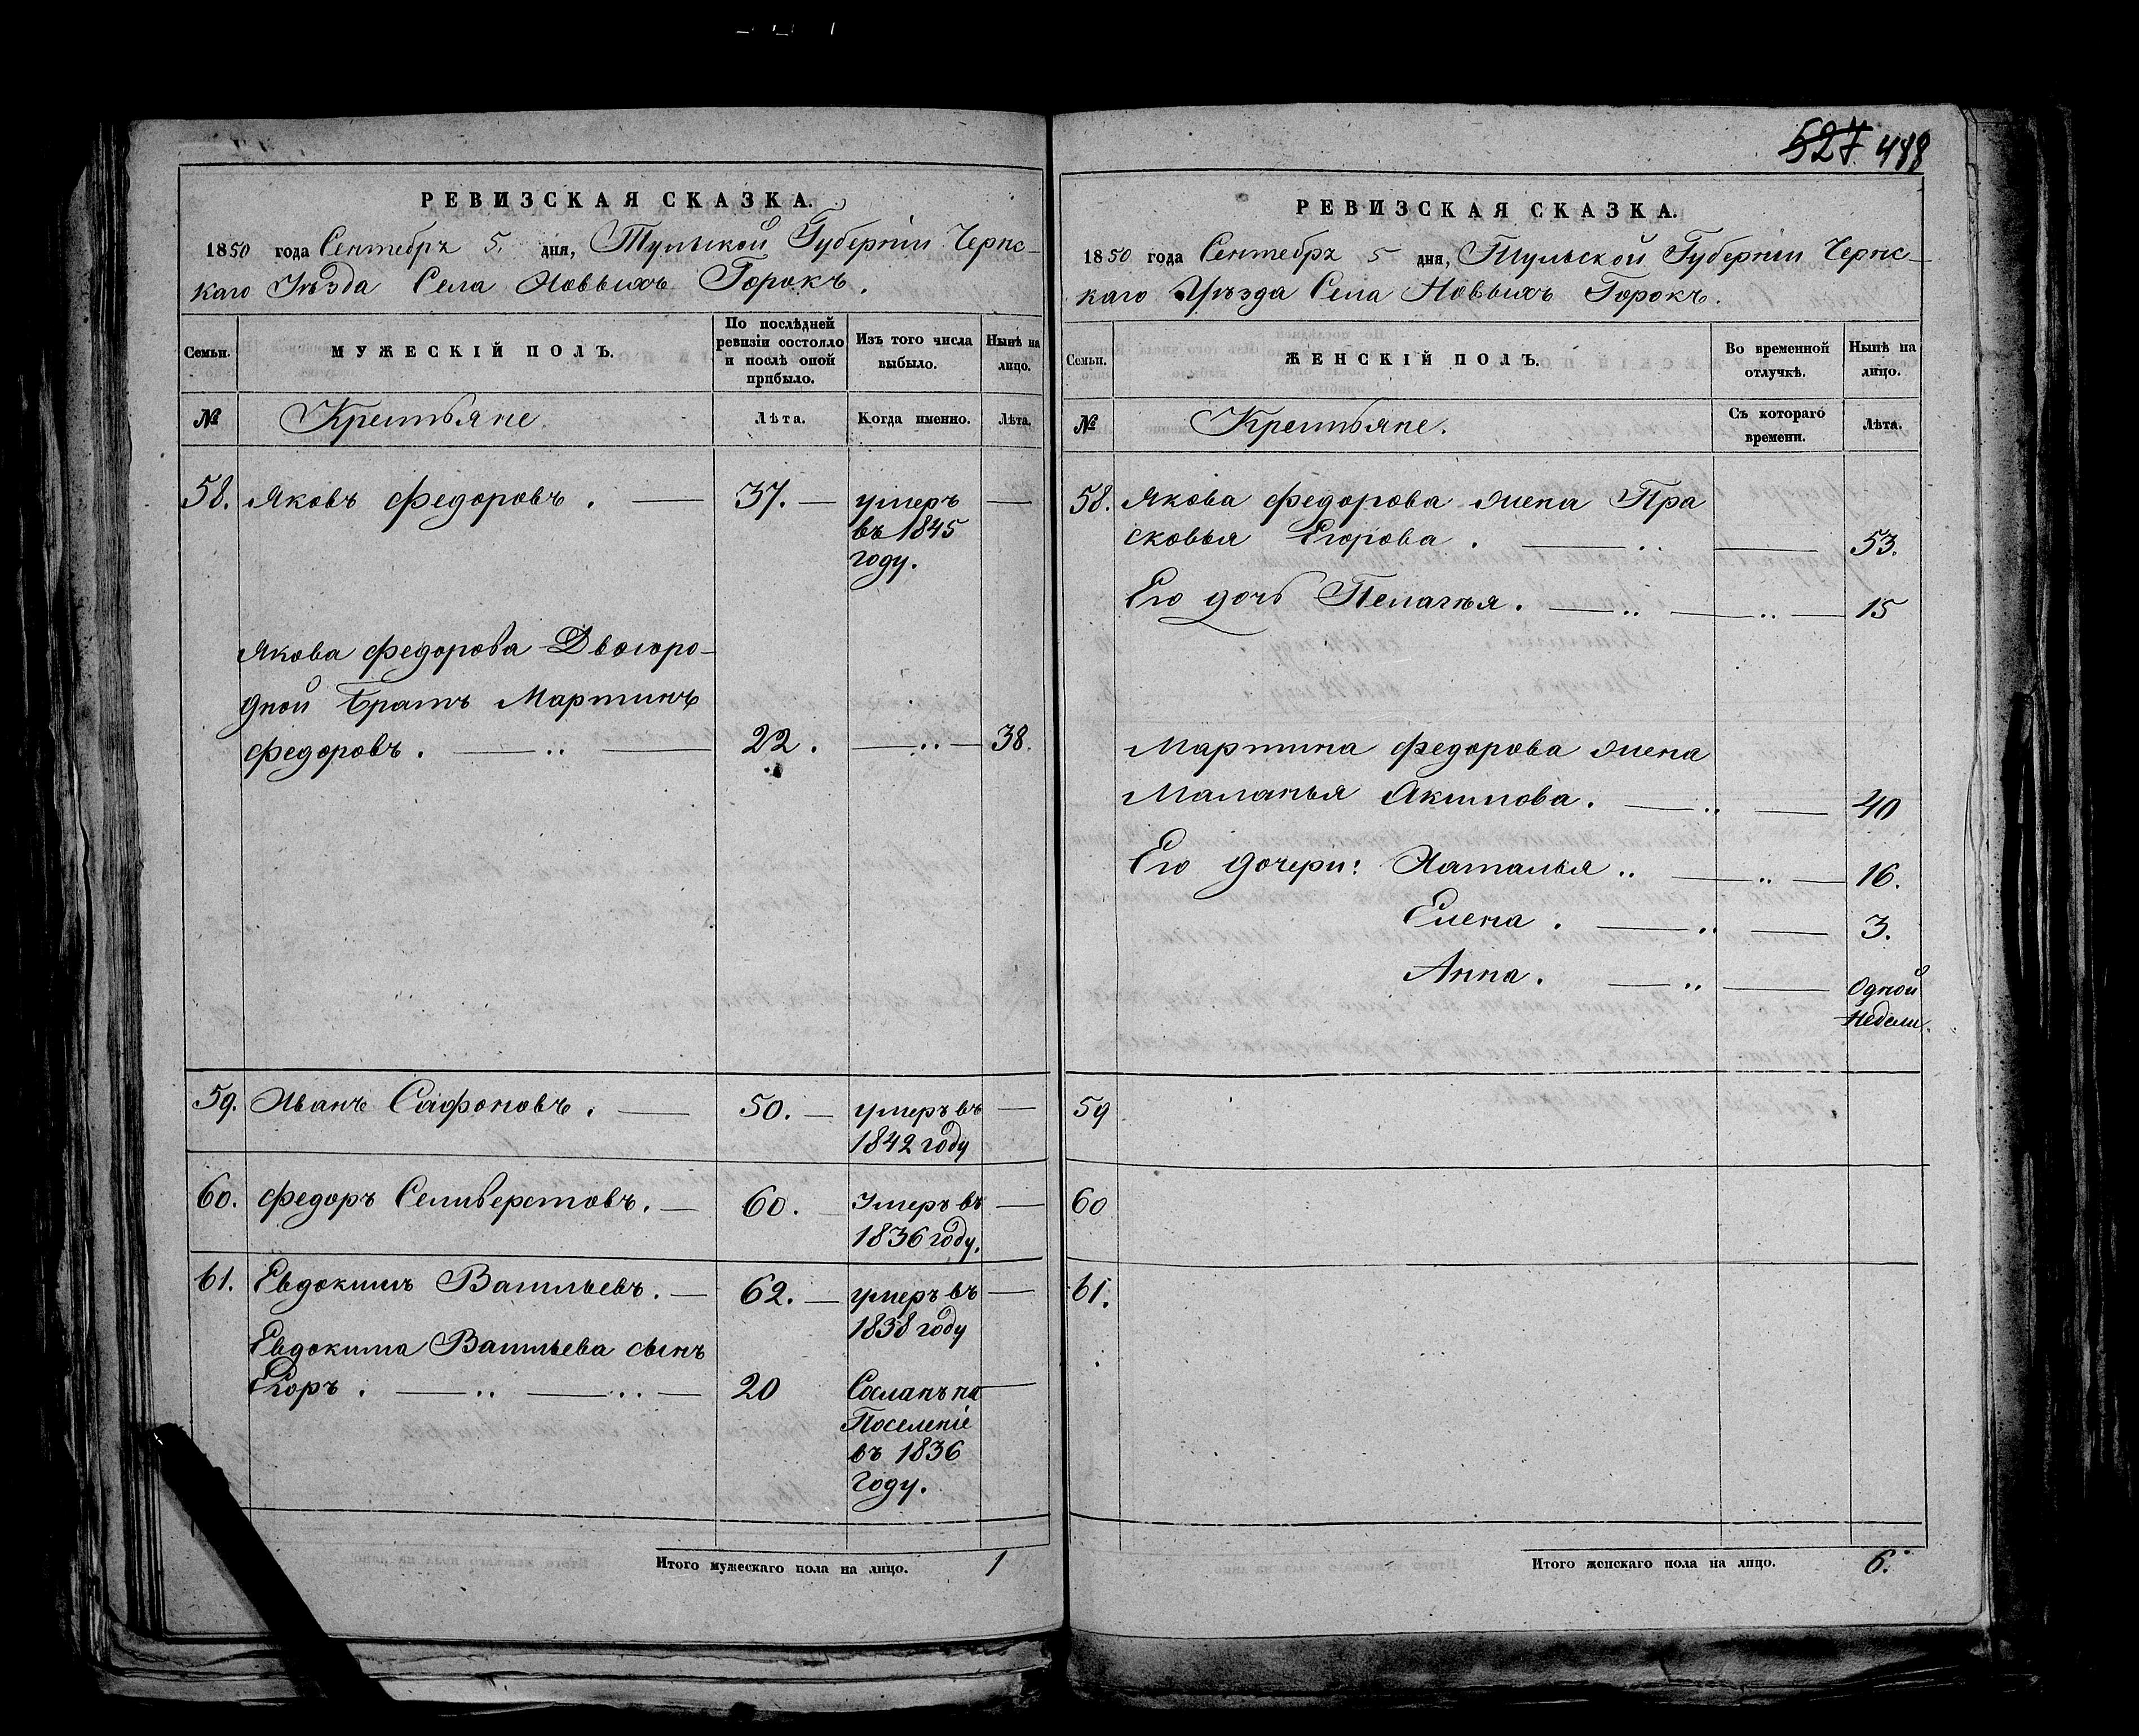 527 488
РЕВИЗСКАЯ СКАЗКА.
1850 года Сентября 5. дня, Тульской Губерніи Чернс-
каго Уѣзда Села Новыхъ Горокъ.
Семьи.
МУЖЕСКІЙ ПОЛЪ.
По послѣдней
ревизіи состояло
и послѣ оной
прибыло.
Изъ того числа
выбыло.
Нынѣ на
лицо.
№
Крестьяне.
Лѣта.
Когда именно.
Лѣта.
58. Яковъ Федоровъ. — 37. — умеръ —
въ 1845
году.
Якова Федорова Двоюро-
дной братъ Мартинъ
Федоровъ. — 22. — 38.
59. Иванъ Сафоновъ. — 50. — умеръ въ —
1842 году
60. Федоръ Селиверстовъ. — 60. — Умеръ въ —
1836 году.
61. Евдокимъ Васильевъ. — 62. — умеръ въ —
1838 году
Евдокима Васильева сынъ
Егоръ. — 20 Сосланъ на —
Поселеніе
въ 1836
году.
Итого мужескаго пола на лицо. 1
РЕВИЗСКАЯ СКАЗКА.
1850 года Сентября 5 дня, Тульской Губерніи Чернс-
каго Уѣзда Села Новыхъ Горокъ.
Семьи.
ЖЕНСКІЙ ПОЛЪ.
Во временной
отлучкѣ.
Нынѣ на
лицо.
№
Крестьяне.
Съ котораго
времени.
Лѣта.
58. Якова Федорова жена Пра
сковья Егорова. — 53.
Его дочь Пелагѣя. — 15
Мартина Федорова жена
Маланья Акимова. — 40
Его дочери: Наталья — 16.
Елена. — 3.
Анна. — Одной
Недели.
59
60
61.
Итого женскаго пола на лицо. 6.